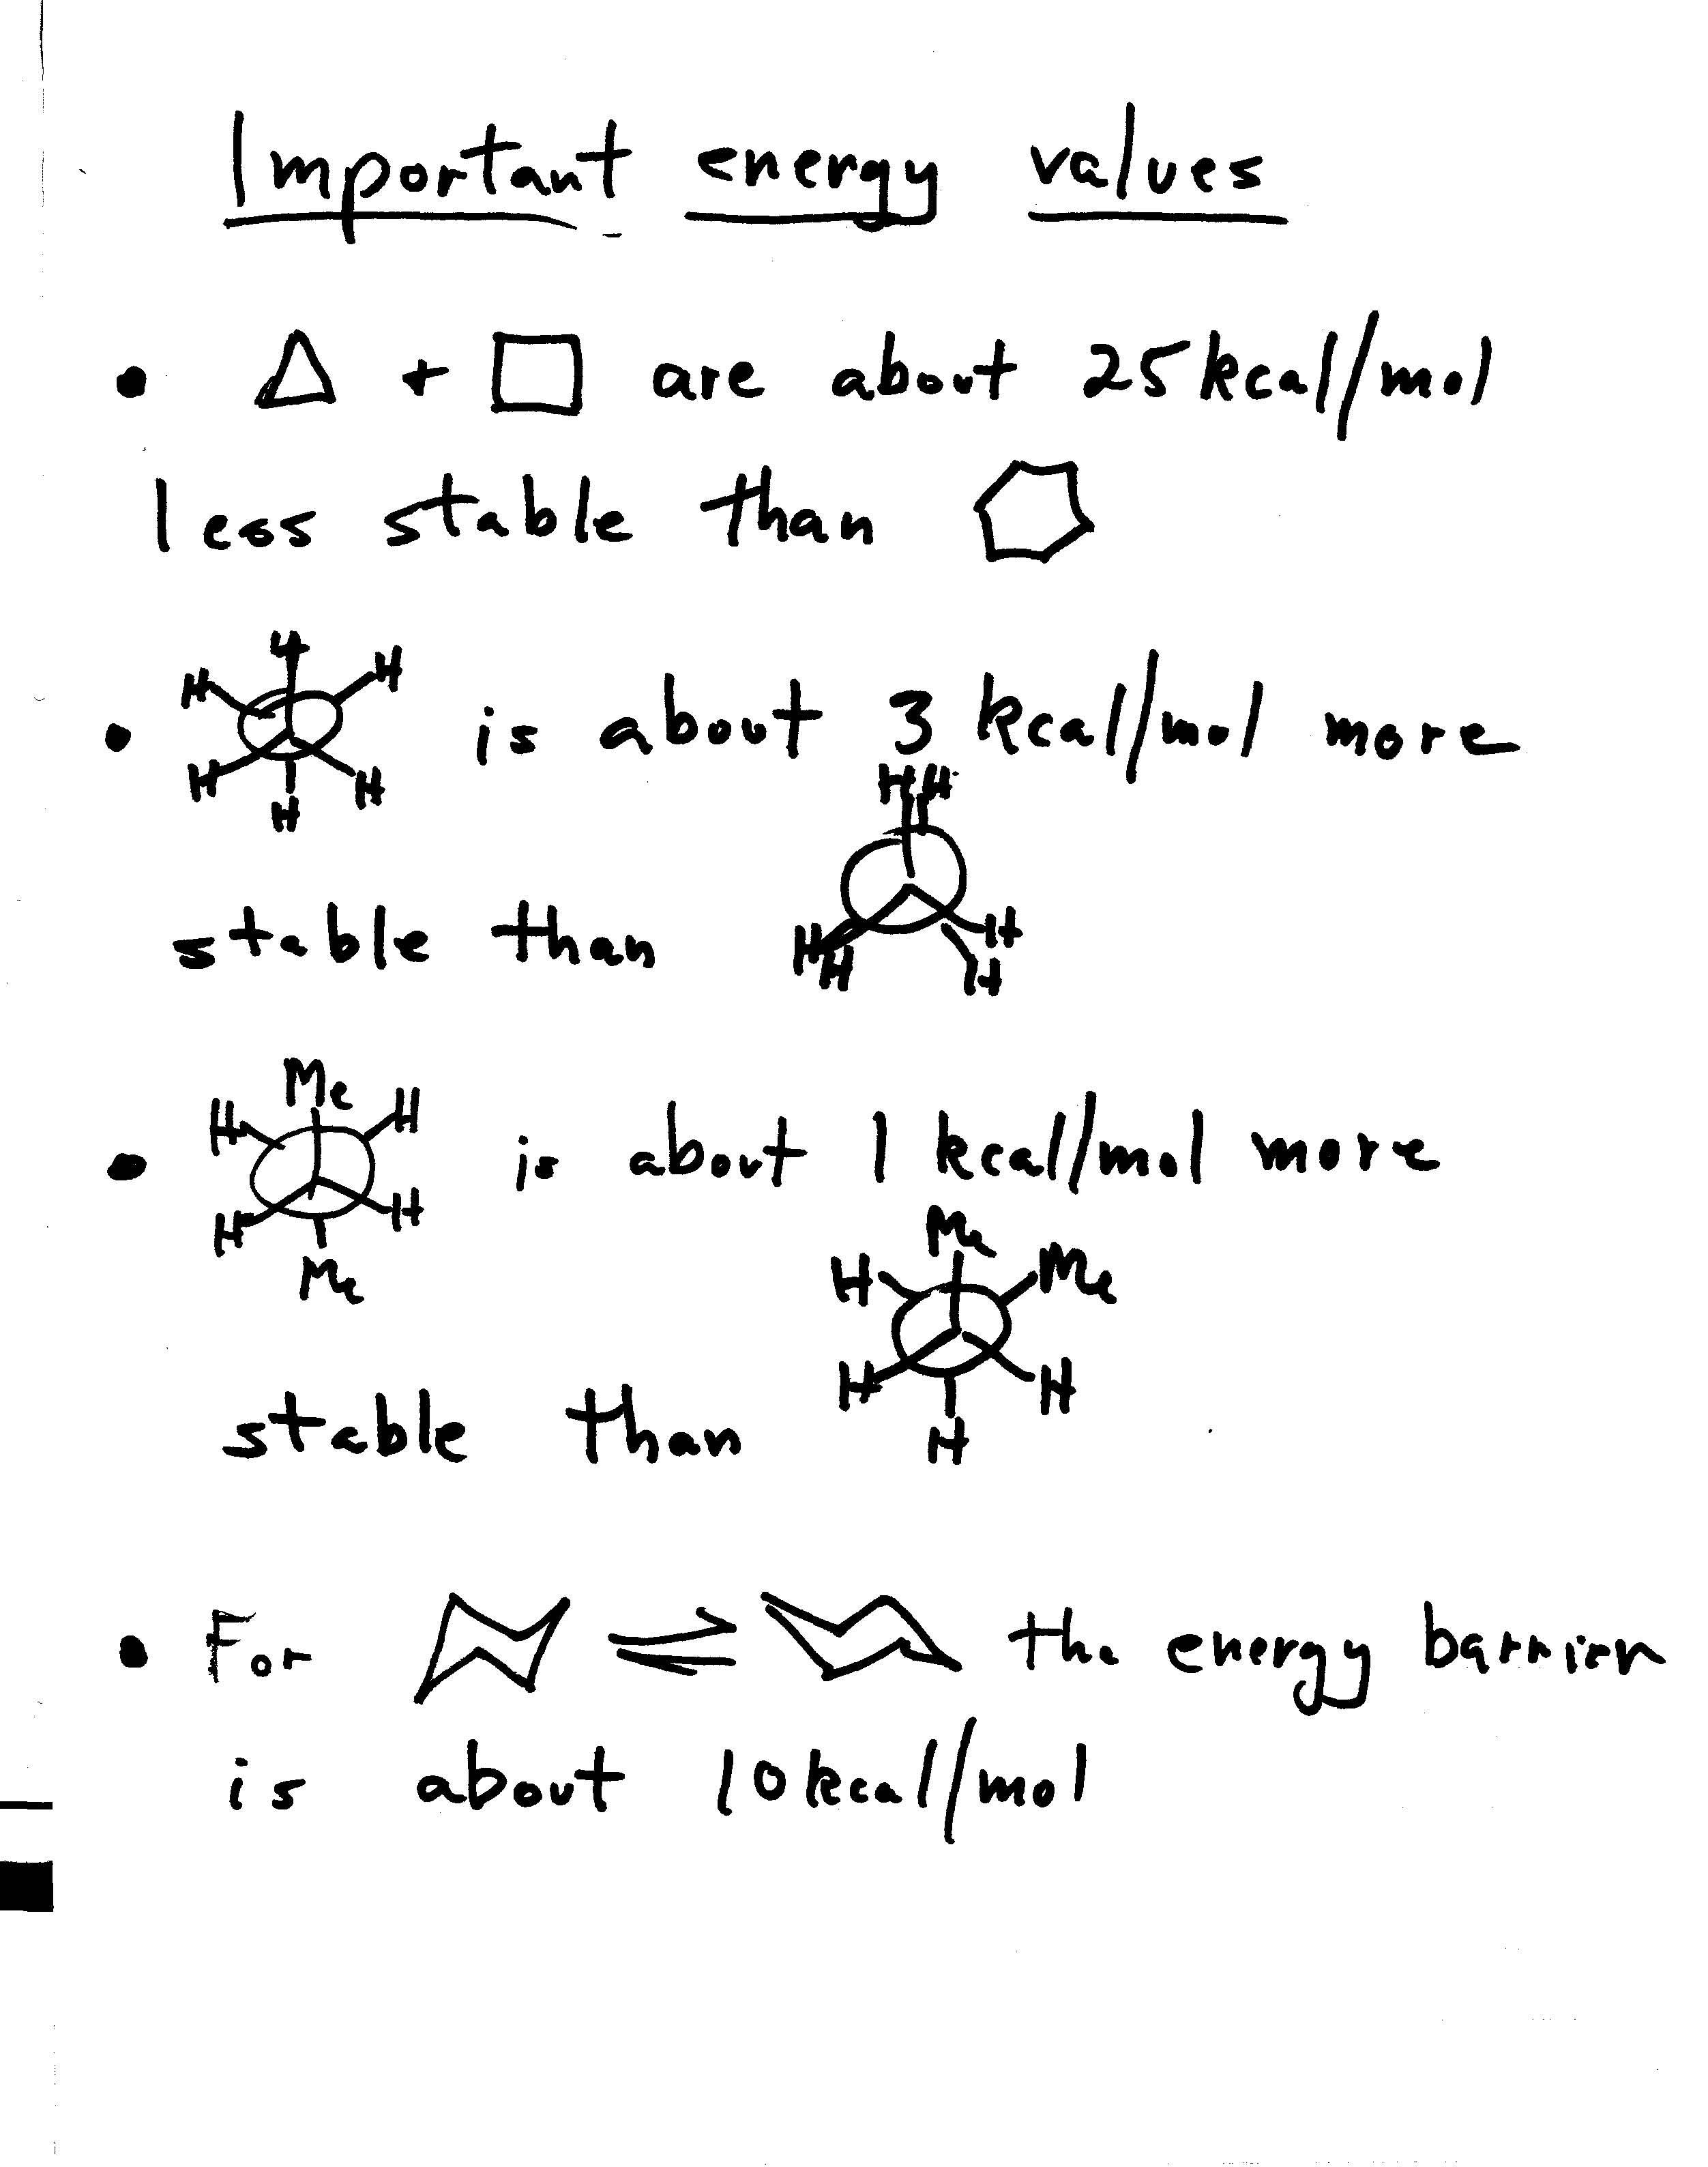 Important energy values
• + are about 25 kcal/mol
less stable than
H H H
• is about 3 kcal/mol more
H H H
H H
stable than
H H H H
Me
H H
• is about 1 kcal/mol more
H H
Me
Me
H Me
H H
stable than
H
• For ⇌ the energy barrier
is about 10 kcal/mol